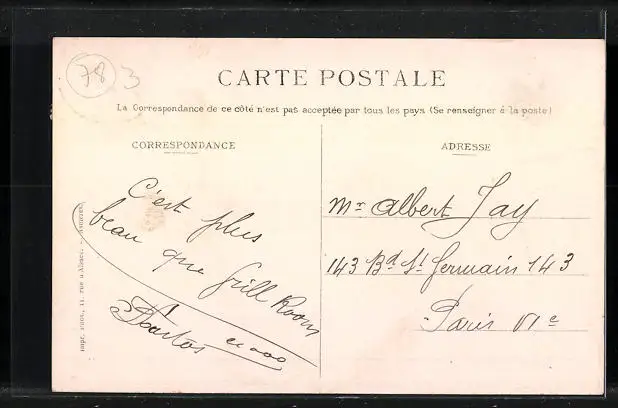 78 3
CARTE POSTALE
La Correspondance de ce côté n'est pas acceptée par tous les pays (Se renseigner à la poste)
CORRESPONDANCE
C'est plus
beau que Grill Room
ADRESSE
Mr Albert Jay
143 Bd St Germain 143
Paris VIe